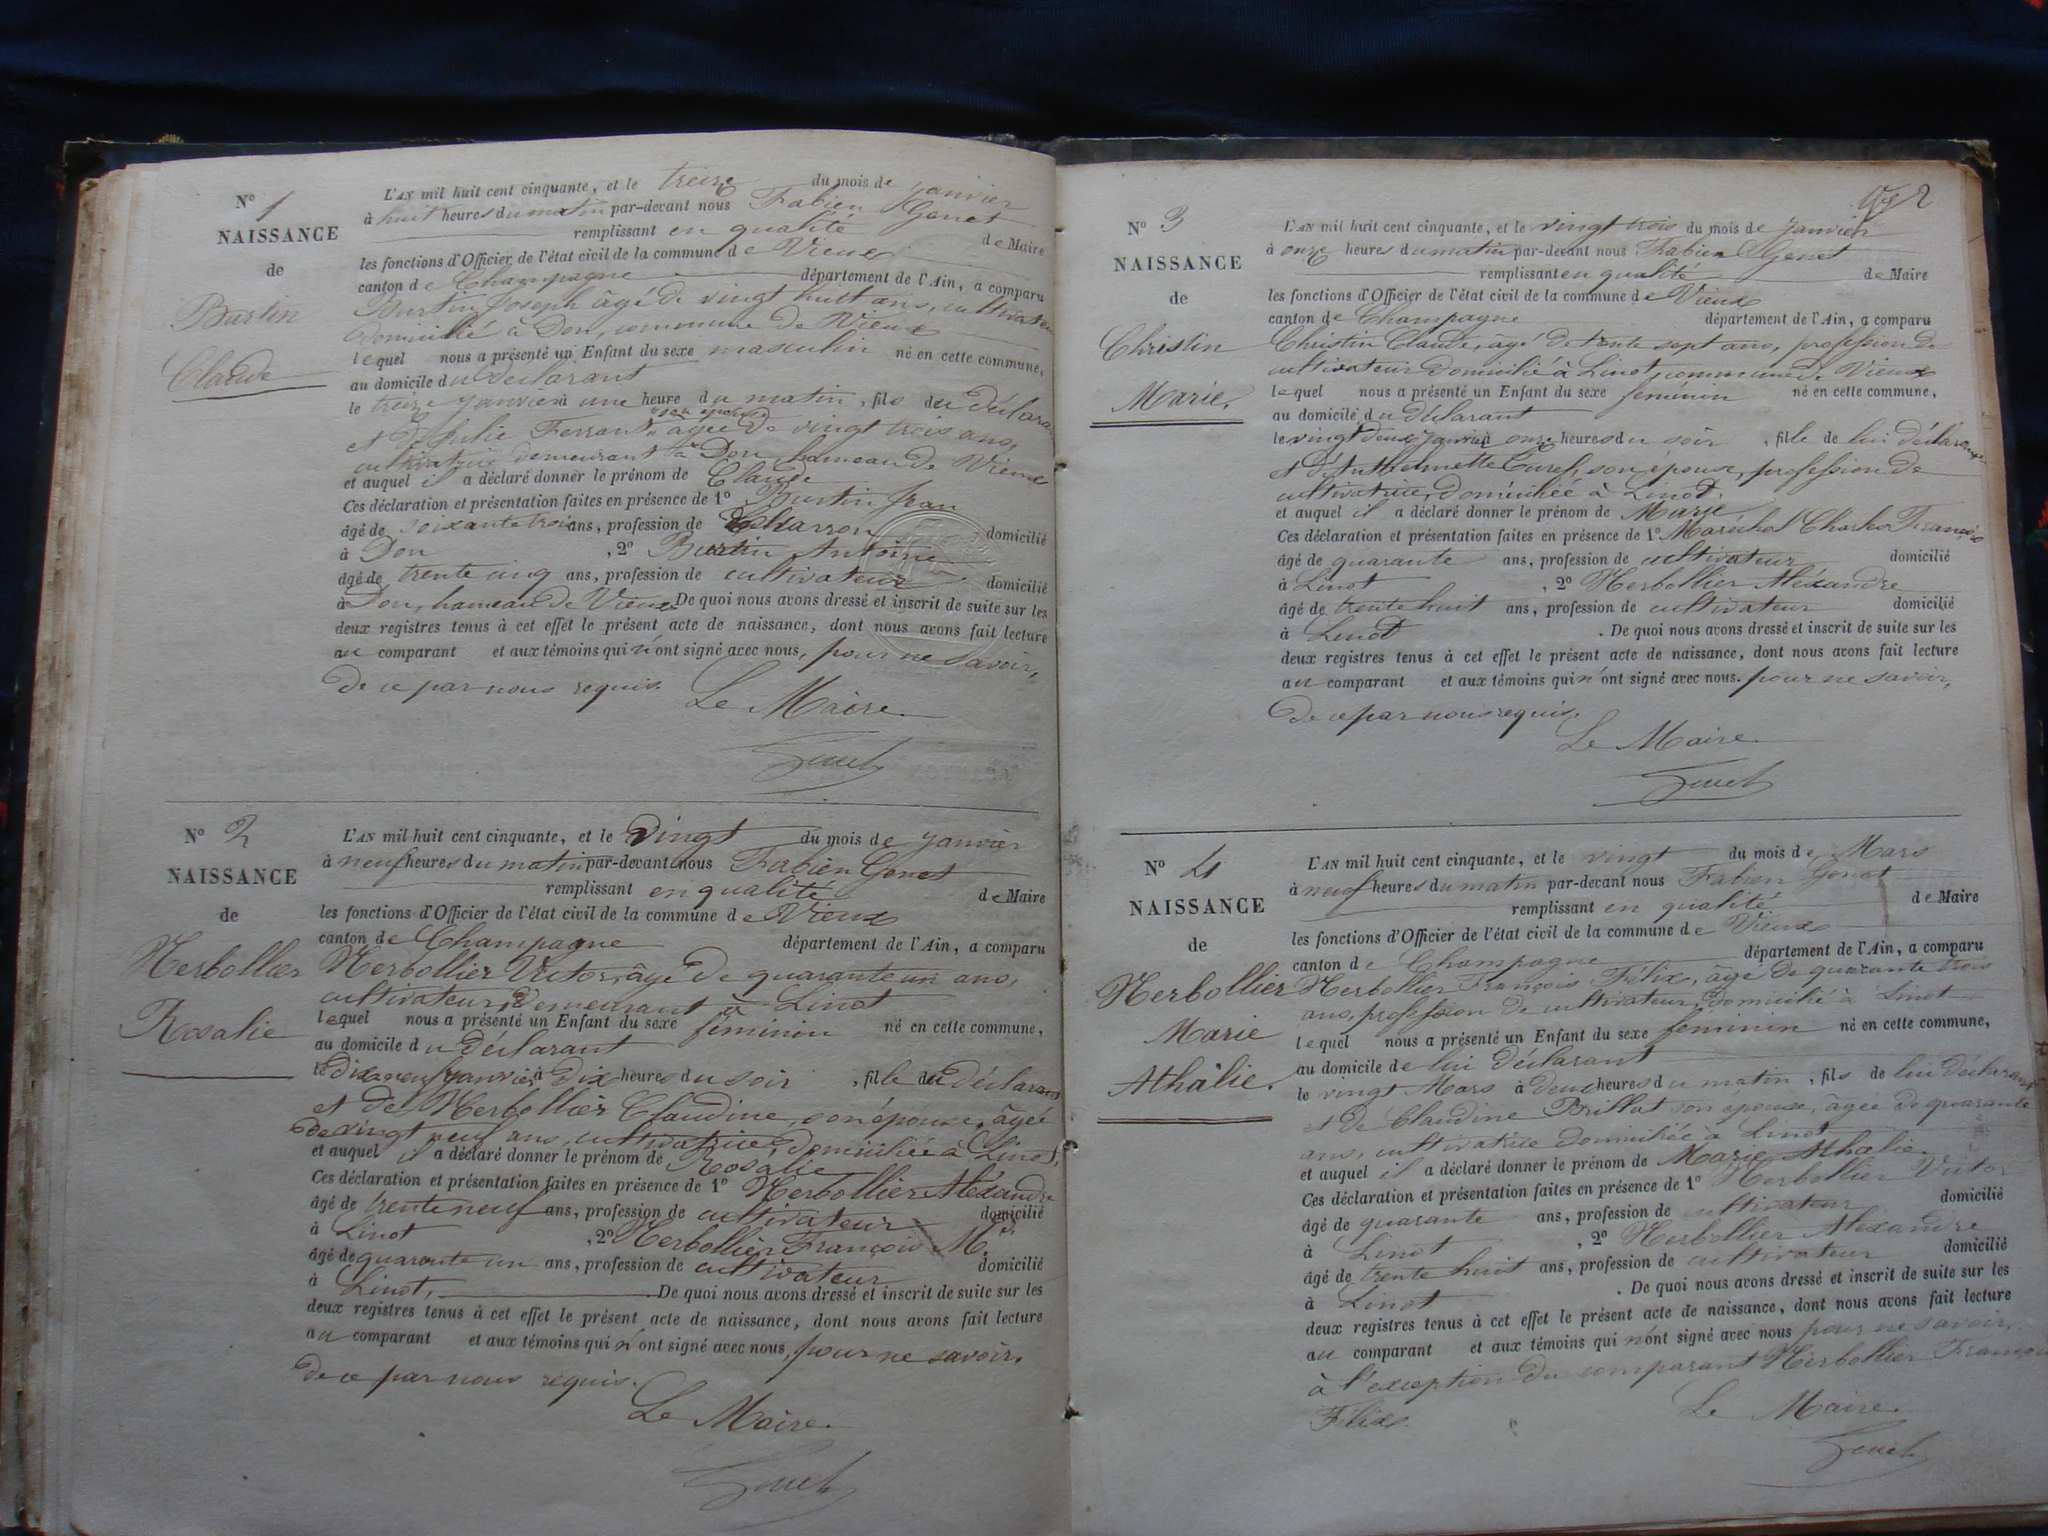 N° 1
NAISSANCE
de
Burtin
Claude
L'AN mil huit cent cinquante, et le treize du mois de janvier
à huit heures du matin par-devant nous Fabien Genet
remplissant en qualité de Maire
les fonctions d'Officier de l'état civil de la commune de Vieux
canton de Champagne département de l'Ain, a comparu
Burtin Joseph âgé de vingt huit ans, cultivateur
domicilié à Don, commune de Vieux
lequel nous a présenté un Enfant du sexe masculin né en cette commune,
au domicile du déclarant
le treize janvier à une heure du matin, fils du déclarant
et de Julie Ferrant son épouse âgée de vingt trois ans,
cultivatrice demeurant à Don, hameau de Vieux
et auquel il a déclaré donner le prénom de Claude
Ces déclaration et présentation faites en présence de 1° Burtin Jean
âgé de soixante trois ans, profession de Charron domicilié
à Don , 2° Burtin Antoine
âgé de trente cinq ans, profession de cultivateur domicilié
à Don, hameau de Vieux De quoi nous avons dressé et inscrit de suite sur les
deux registres tenus à cet effet le présent acte de naissance, dont nous avons fait lecture
au comparant et aux témoins qui n'ont signé avec nous, pour ne savoir,
de ce par nous requis.
Le Maire
Genet
N° 2
NAISSANCE
de
Herbollier
Rosalie
L'AN mil huit cent cinquante, et le vingt du mois de janvier
à neuf heures du matin par-devant nous Fabien Genet
remplissant en qualité de Maire
les fonctions d'Officier de l'état civil de la commune de Vieux
canton de Champagne département de l'Ain, a comparu
Herbollier Victor, âgé de quarante un ans,
cultivateur, demeurant à Linot
lequel nous a présenté un Enfant du sexe féminin né en cette commune,
au domicile du déclarant
le dix neuf janvier à dix heures du soir , fille du déclarant
et de Herbollier Claudine, son épouse, âgée
de vingt neuf ans, cultivatrice, domiciliée à Linot,
et auquel il a déclaré donner le prénom de Rosalie
Ces déclaration et présentation faites en présence de 1° Herbollier Aléxandre
âgé de trente neuf ans, profession de cultivateur domicilié
à Linot , 2° Herbollier François M.
âgé de quarante un ans, profession de cultivateur domicilié
à Linot, De quoi nous avons dressé et inscrit de suite sur les
deux registres tenus à cet effet le présent acte de naissance, dont nous avons fait lecture
au comparant et aux témoins qui n'ont signé avec nous, pour ne savoir,
de ce par nous requis.
Le Maire.
Genet
2
N° 3
NAISSANCE
de
Christin
Marie.
L'AN mil huit cent cinquante, et le vingt trois du mois de janvier
à onze heures du matin par-devant nous Fabien Genet
remplissant en qualité de Maire
les fonctions d'Officier de l'état civil de la commune de Vieux
canton de Champagne département de l'Ain, a comparu
Christin Claude, âgé de trente sept ans, profession de
cultivateur domicilié à Linot, commune de Vieux
lequel nous a présenté un Enfant du sexe féminin né en cette commune,
au domicile du déclarant
le vingt deux janvier à onze heures du soir , fille de lui déclarant
et d'Anthelmette son épouse, profession de
cultivatrice, domiciliée à Linot.
et auquel il a déclaré donner le prénom de Marie
Ces déclaration et présentation faites en présence de 1° Maréchal Charles François
âgé de quarante ans, profession de cultivateur domicilié
à Linot , 2° Herbollier Aléxandre
âgé de trente huit ans, profession de cultivateur domicilié
à Linot . De quoi nous avons dressé et inscrit de suite sur les
deux registres tenus à cet effet le présent acte de naissance, dont nous avons fait lecture
au comparant et aux témoins qui n'ont signé avec nous. pour ne savoir,
de ce par nous requis.
Le Maire.
Genet
N° 4
NAISSANCE
de
Herbollier
Marie
Athâlie.
L'AN mil huit cent cinquante, et le vingt du mois de Mars
à neuf heures du matin par-devant nous Fabien Genet
remplissant en qualité de Maire
les fonctions d'Officier de l'état civil de la commune de Vieux
canton de Champagne département de l'Ain, a comparu
Herbollier François Félix, âgé de quarante trois
ans, profession de cultivateur, domicilié à Linot
lequel nous a présenté un Enfant du sexe féminin né en cette commune,
au domicile de lui déclarant
le vingt Mars à deux heures du matin , fils de lui déclarant
et de Claudine Brillat son épouse, âgée de quarante
ans, cultivatrice domiciliée à Linot
et auquel il a déclaré donner le prénom de Marie Athalie.
Ces déclaration et présentation faites en présence de 1° Herbollier Victor
âgé de quarante ans, profession de cultivateur domicilié
à Linot , 2° Herbollier Aléxandre
âgé de trente huit ans, profession de cultivateur domicilié
à Linot . De quoi nous avons dressé et inscrit de suite sur les
deux registres tenus à cet effet le présent acte de naissance, dont nous avons fait lecture
au comparant et aux témoins qui n'ont signé avec nous pour ne savoir,
à l'exception du comparant Herbollier François
Félix.
Le Maire.
Genet